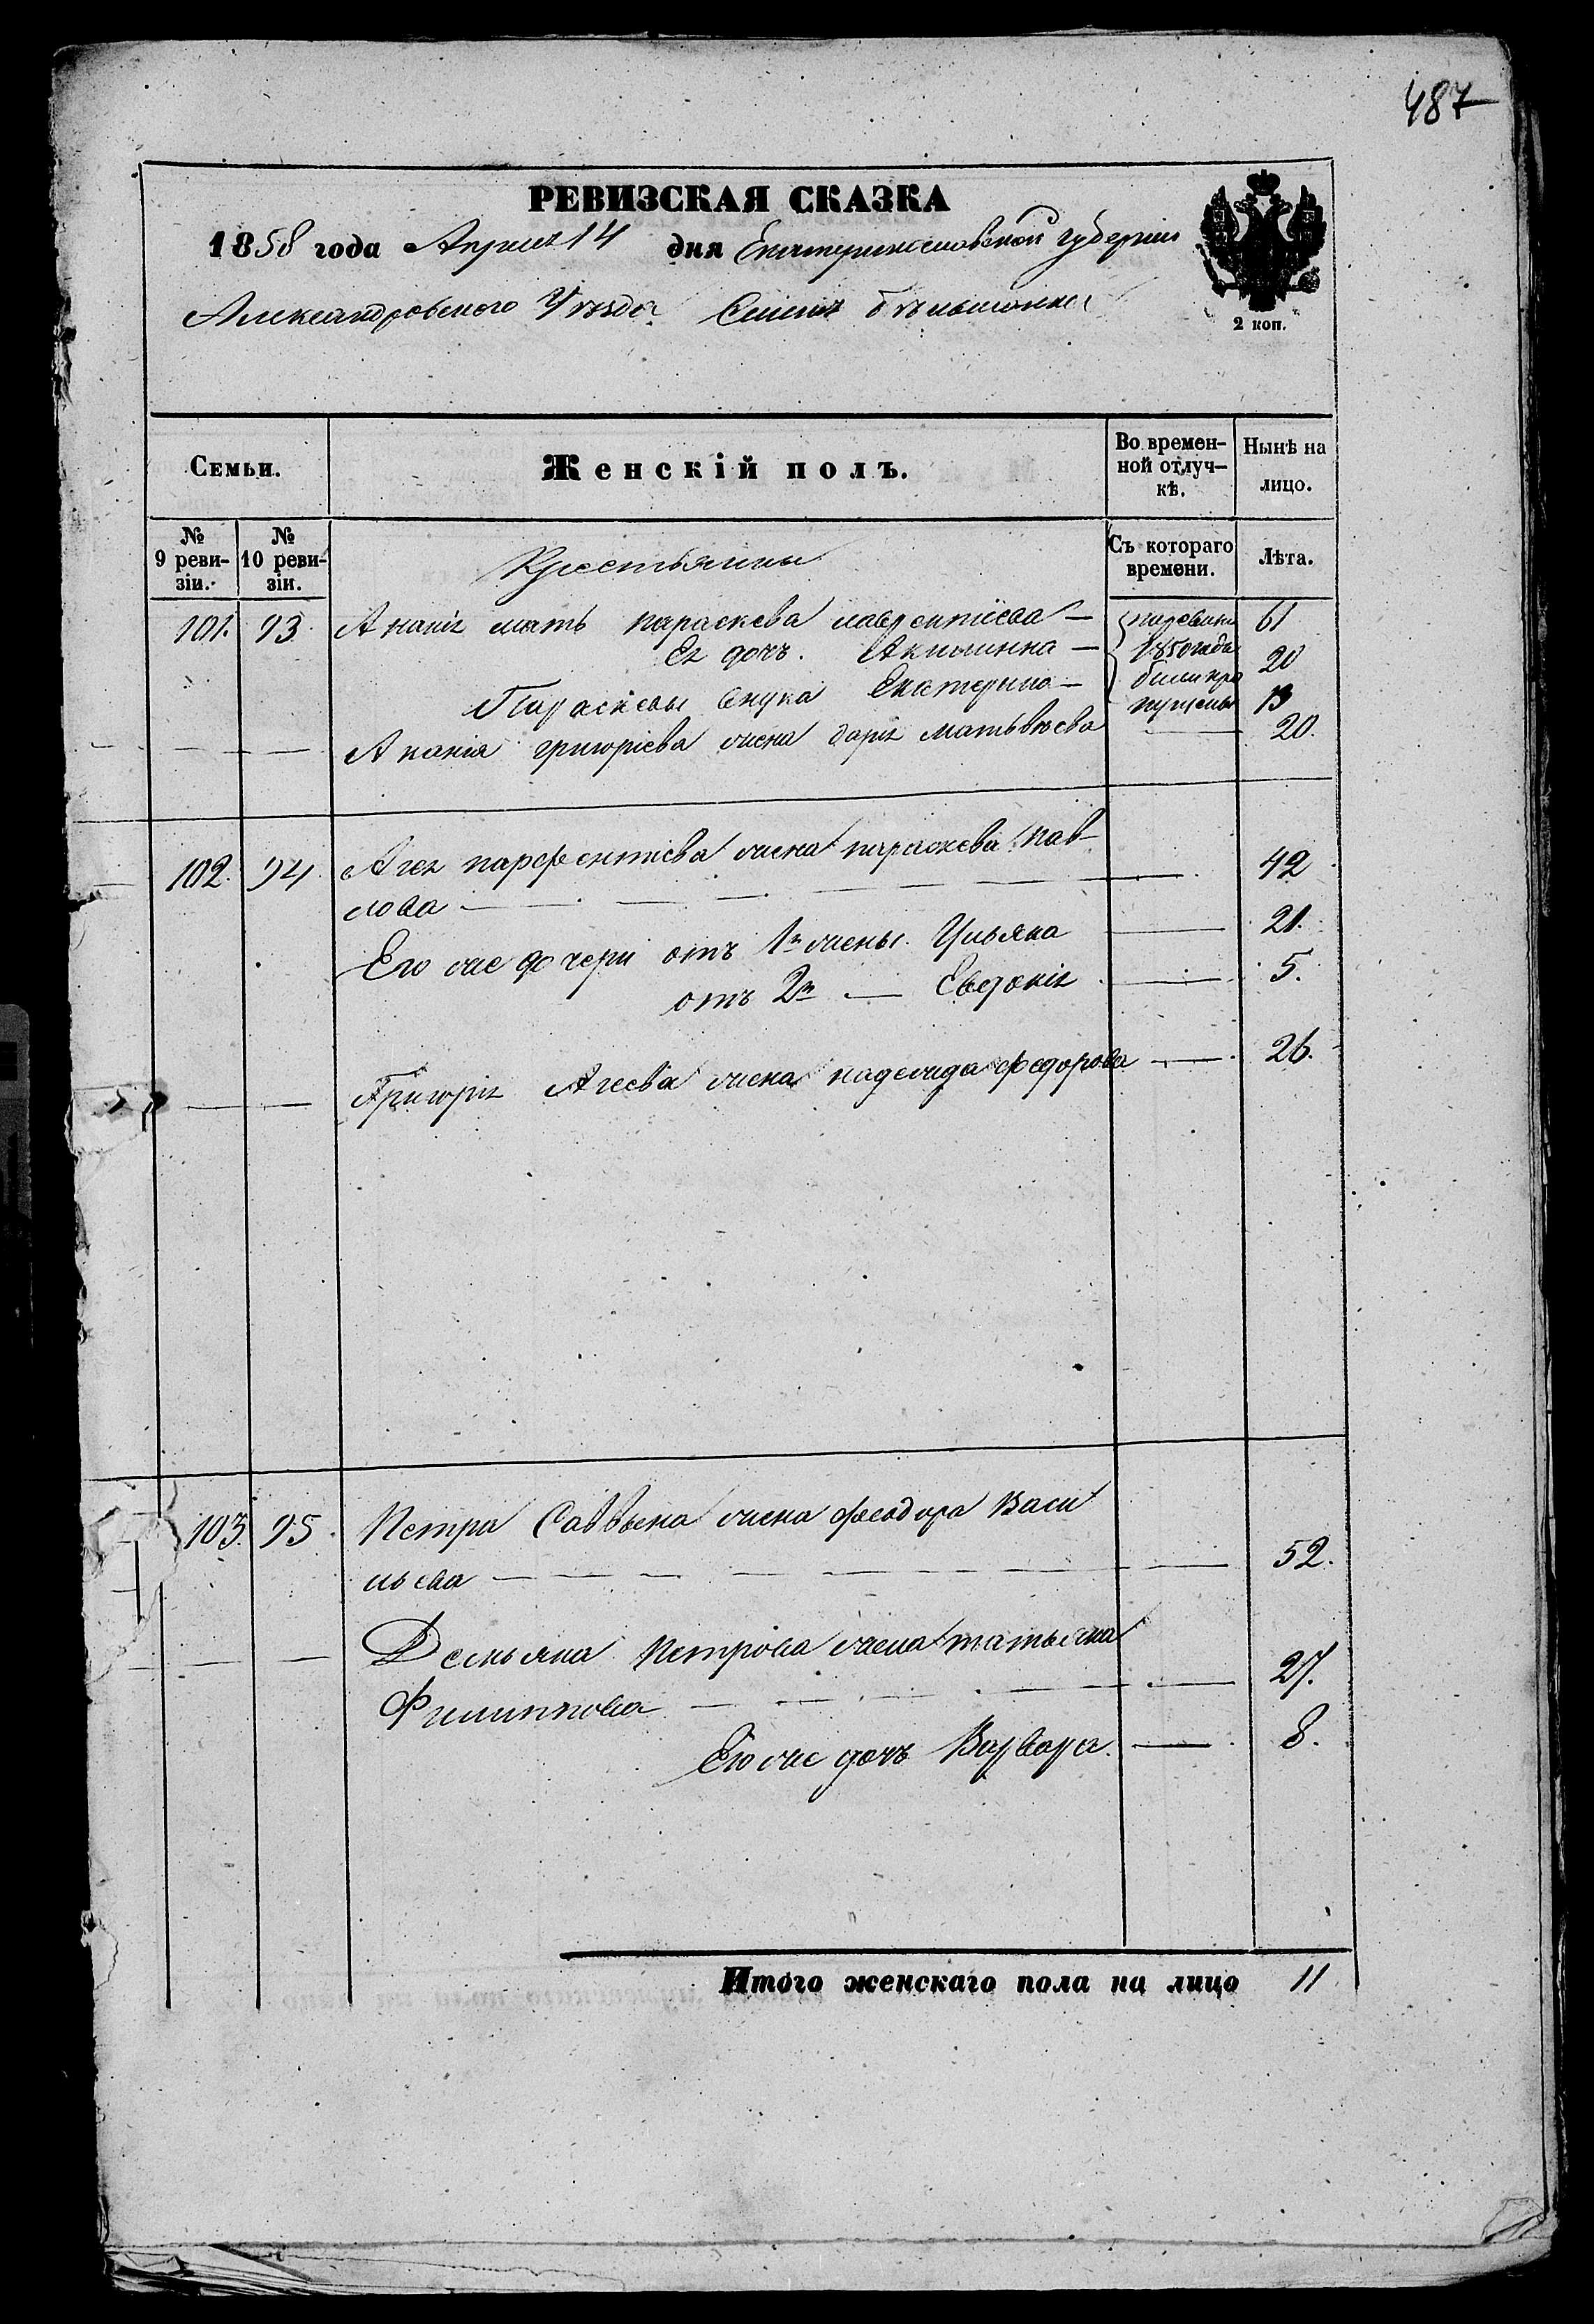 487
РЕВИЗСКАЯ СКАЗКА
1858 года Апреля 14 дня Екатеринославской губернии
Александровского Уезда Селенія
2 коп.
Семьи. Женскій полъ. Во времен-
ной отлуч-
кѣ. Нынѣ на
лицо.
№
9 реви-
зіи. №
10 реви-
зіи. Крестьянины Съ котораго
времени. Лѣта.
101. 93. Ананія мать параскева лаврентіева — по ревизіи 61
Ея дочъ. Акилинна — 1850 года 20
Параскевы внука Екатерина — были про 13
пущены
— — Ананія григоріева жена дарія матьвѣева — 20.
102. 94. Агея парфентіева жена параскева пав-
лова — — — — — 42
Его же дочери отъ 1й жены Ульяна — 21.
отъ 2й — Евдокія — 5.
— — Григорія Агеева жена надежда федорова — 26.
103. 95. Петра Саввына жена феодора Васи
льева — — — — — — 52.
— — Демьяна Петрова жена татьяна
Филиппова — — — — — 27.
Его же дочъ Варвара. — 8.
Итого женскаго пола на лицо 11